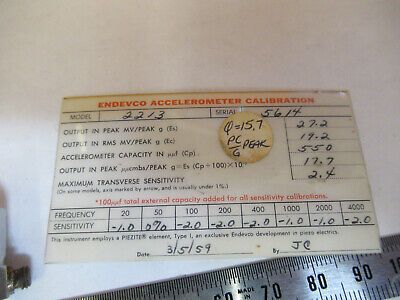 ENDEVCO ACCELEROMETER CALIBRATION
MODEL 2213 SERIAL 5614
OUTPUT IN PEAK MV/PEAK g (Es) 27.2
OUTPUT IN RMS MV/PEAK g (Ec) 19.2
ACCELEROMETER CAPACITY IN μμf (Cp) 550
OUTPUT IN PEAK μμcmbs/PEAK g=Es (Cp+100)×10⁻³ 17.7
MAXIMUM TRANSVERSE SENSITIVITY 2.4
(On some models, axis marked by arrow, and is usually under 1%.)
φ=15.7
PC/G PEAK
*100μμf total external capacity added for all sensitivity calibrations.
FREQUENCY 20 50 100 200 400 1000 2000 4000
SENSITIVITY -1.0 0% -2.0 -2.0 -2.0 -1.0 -1.0 -2.0
This instrument employs a PIEZITE® element, Type I, an exclusive Endevco development in piezo electrics.
Date 3/5/59 By JC